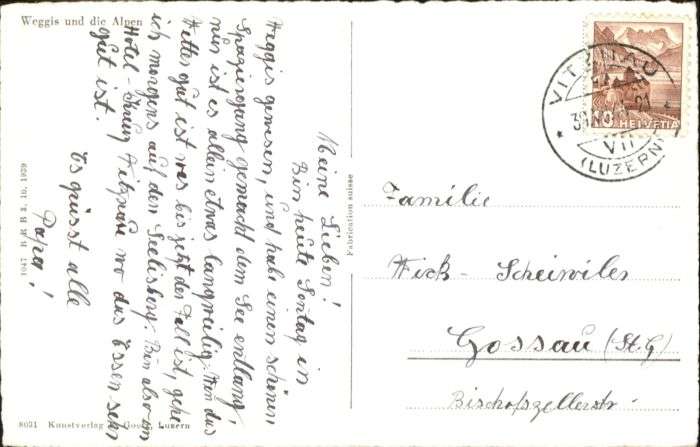 Weggis und die Alpen
Meine Lieben!
Bin heute Sontag in
Weggis gewesen, und habe einen schönen
Spaziergang gemacht dem See entlang,
nur ist es allein etwas langweilig. Wen das
Wetter gut ist was bis jetzt der Fall ist, gehe
ich morgens auf den Seelisberg. Bin also im
Hotel-Kreuz Vitznau wo das Essen sehr
gut ist.
Es grüsst alle
Papa!
1047 B R B 3. 10. 1939
8031 Kunstverlag Goetz, Luzern
Fabrication suisse
VITZNAU
VII
(LUZERN)
10 HELVETIA
Familie
Wick-Scheiwiler
Gossau (St.G)
Bischofszellerstr.